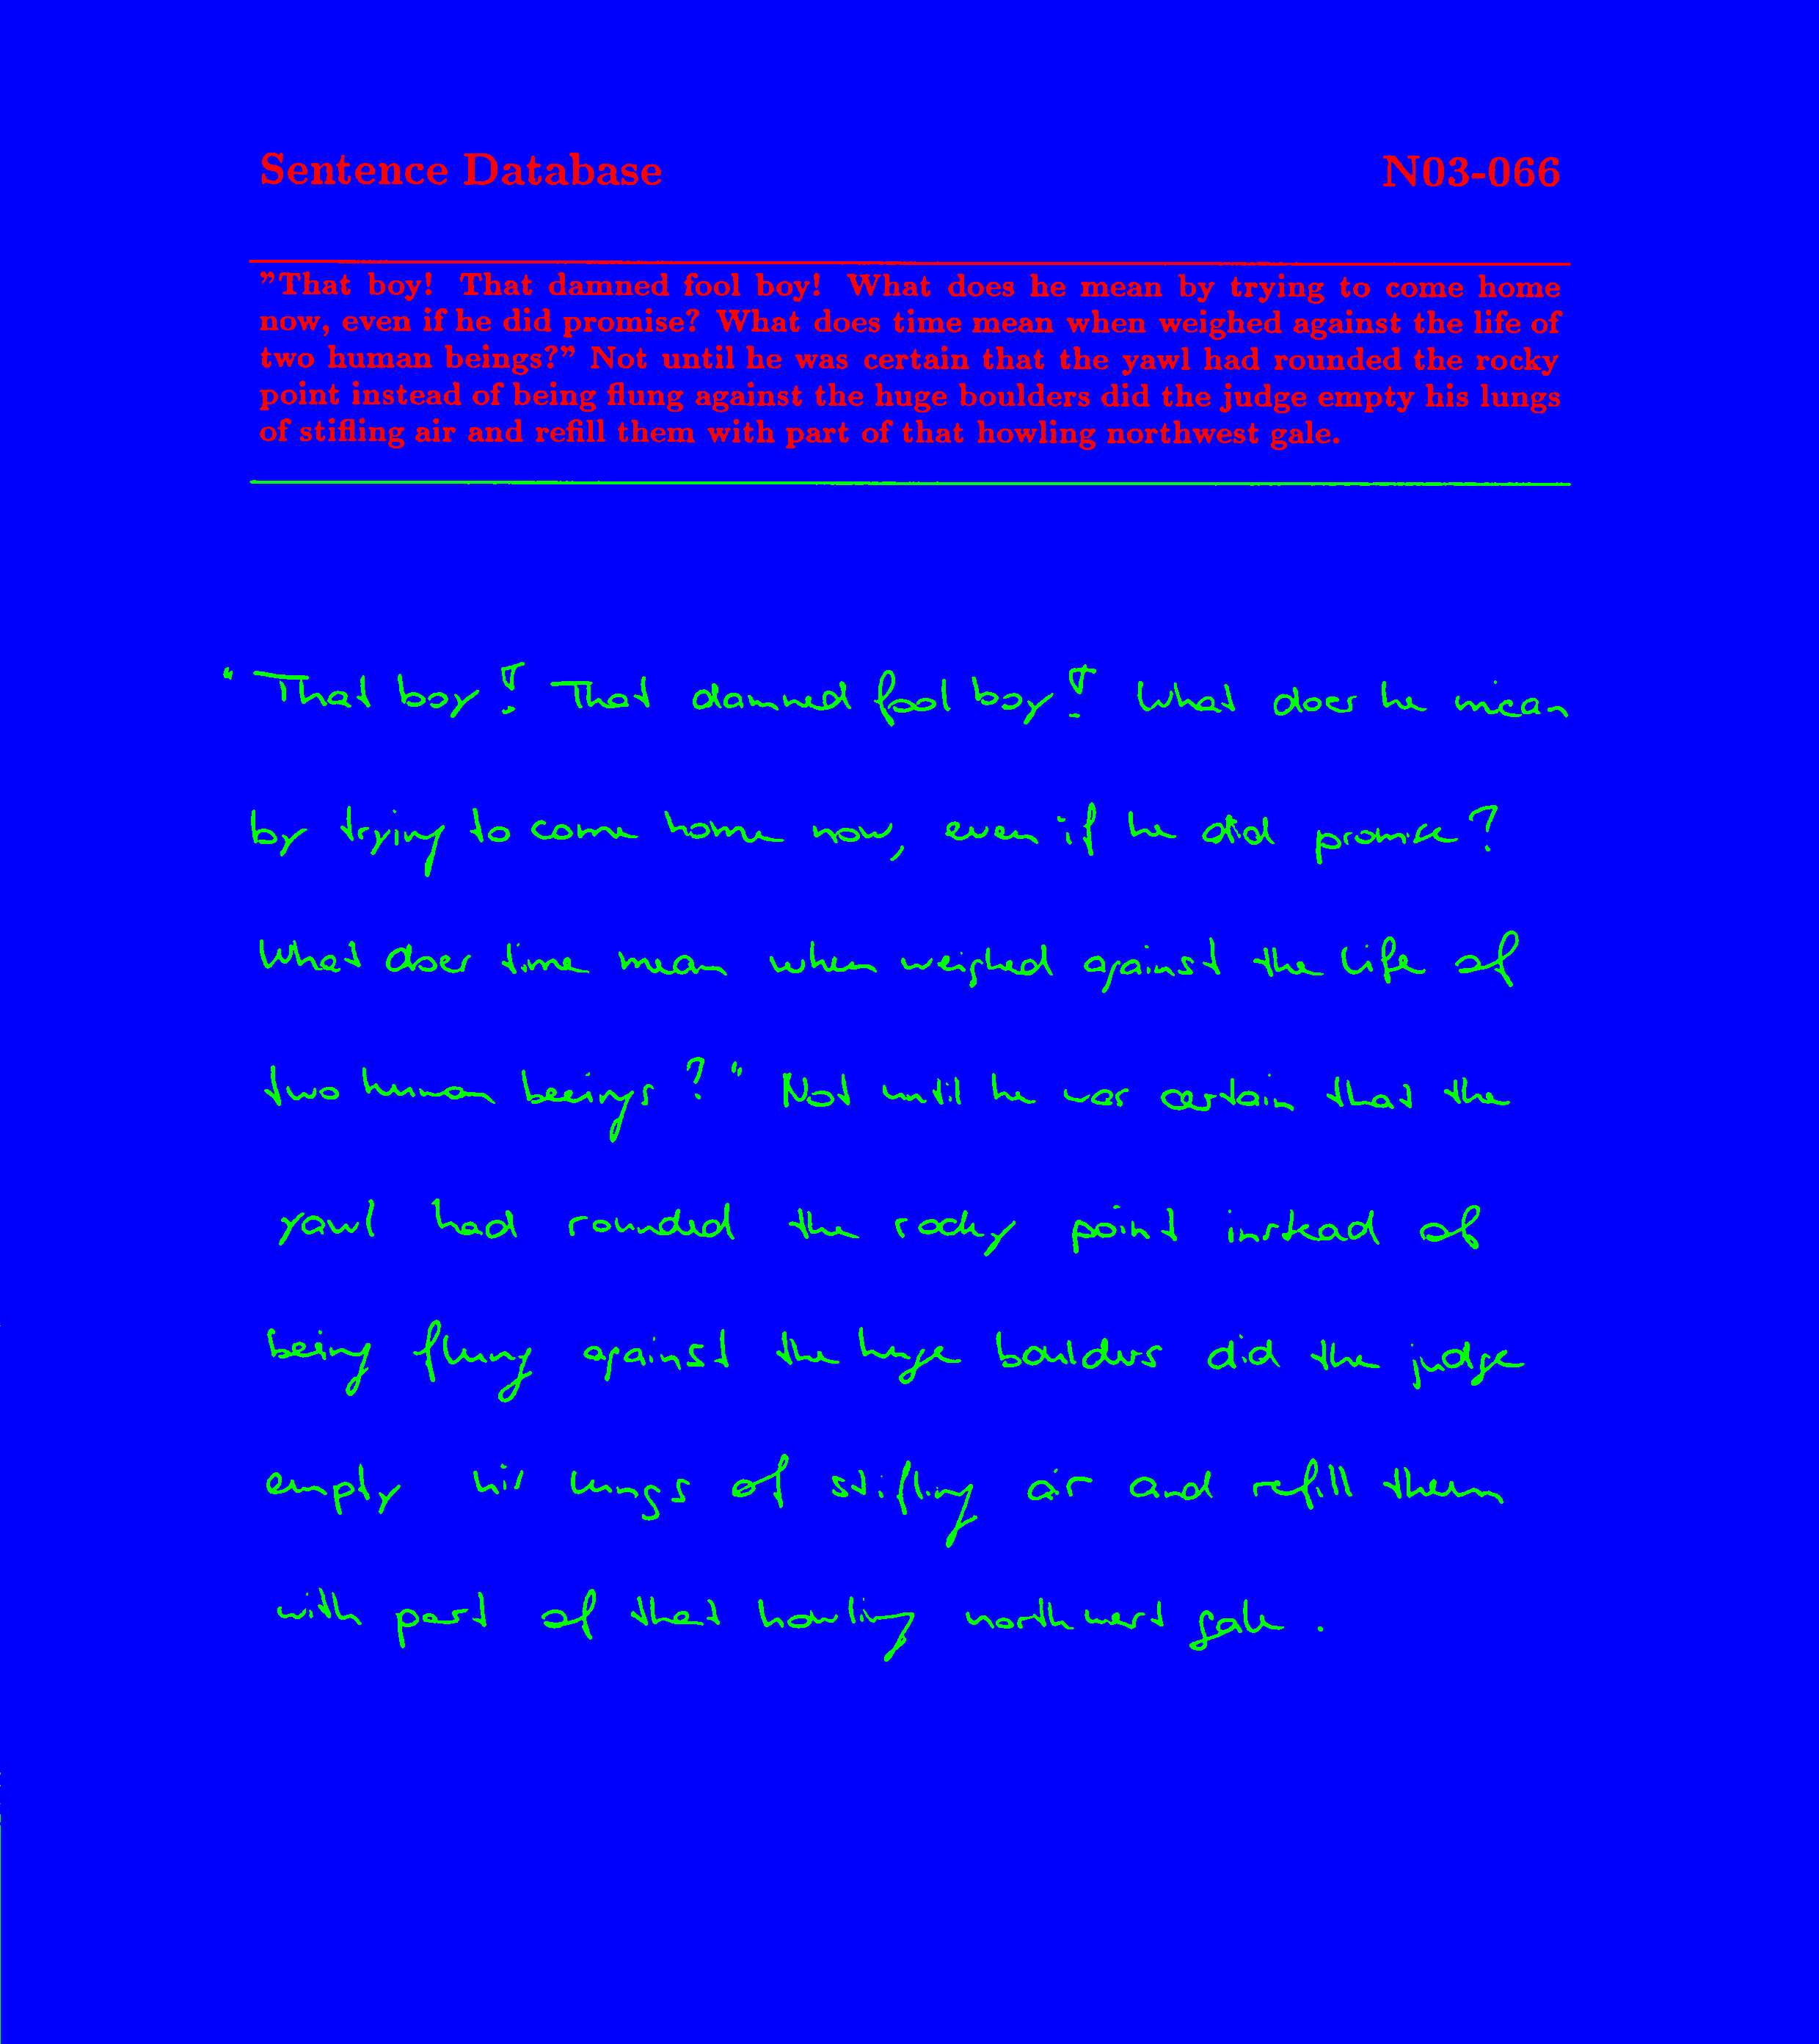 Sentence Database N03-066
"That boy! That damned fool boy! What does he mean by trying to come home
now, even if he did promise? What does time mean when weighed against the life of
two human beings?" Not until he was certain that the yawl had rounded the rocky
point instead of being flung against the huge boulders did the judge empty his lungs
of stifling air and refill them with part of that howling northwest gale.
"That boy! That damned fool boy! What does he mean
by trying to come home now, even if he did promise?
What does time mean when weighed against the life of
two human beeings?" Not until he was certain that the
yawl had rounded the rocky point instead of
being flung against the huge boulders did the judge
empty his lungs of stifling air and refill them
with part of that howling northwest gale.